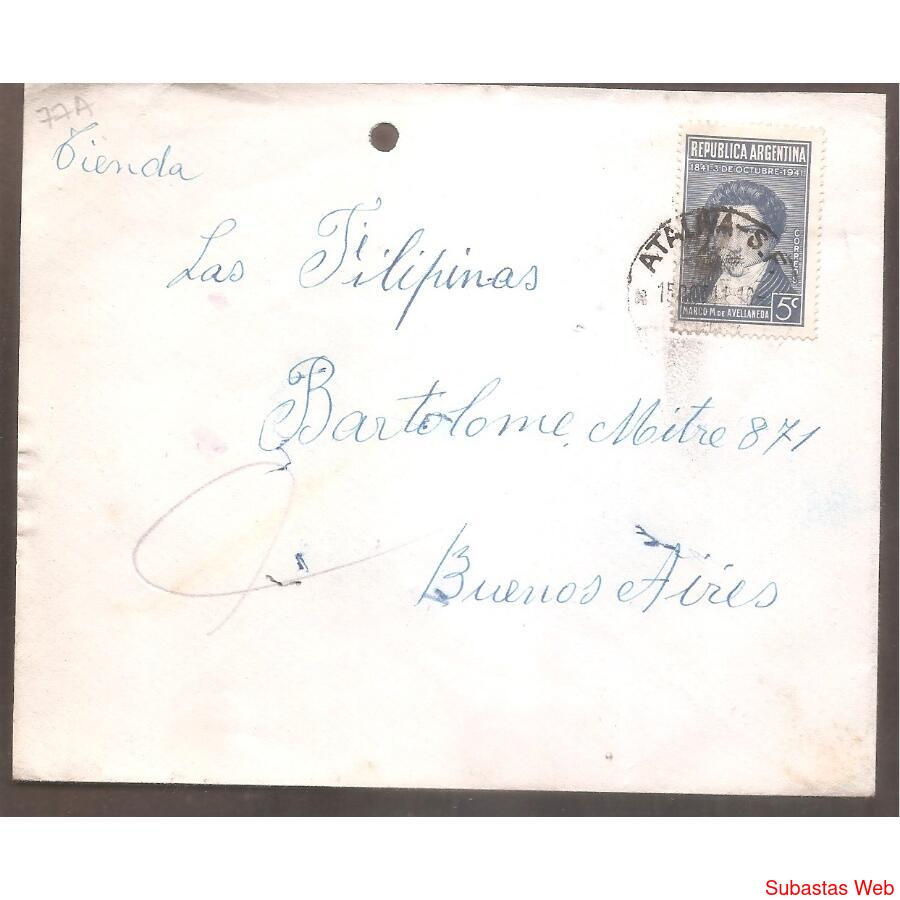 77A
Tienda
Las Filipinas
Bartolome Mitre 871
Buenos Aires
REPUBLICA ARGENTINA
1841-3 DE OCTUBRE-1941
CORREOS
MARCO M DE AVELLANEDA
5c
ATALIVA S.F.
Subastas Web